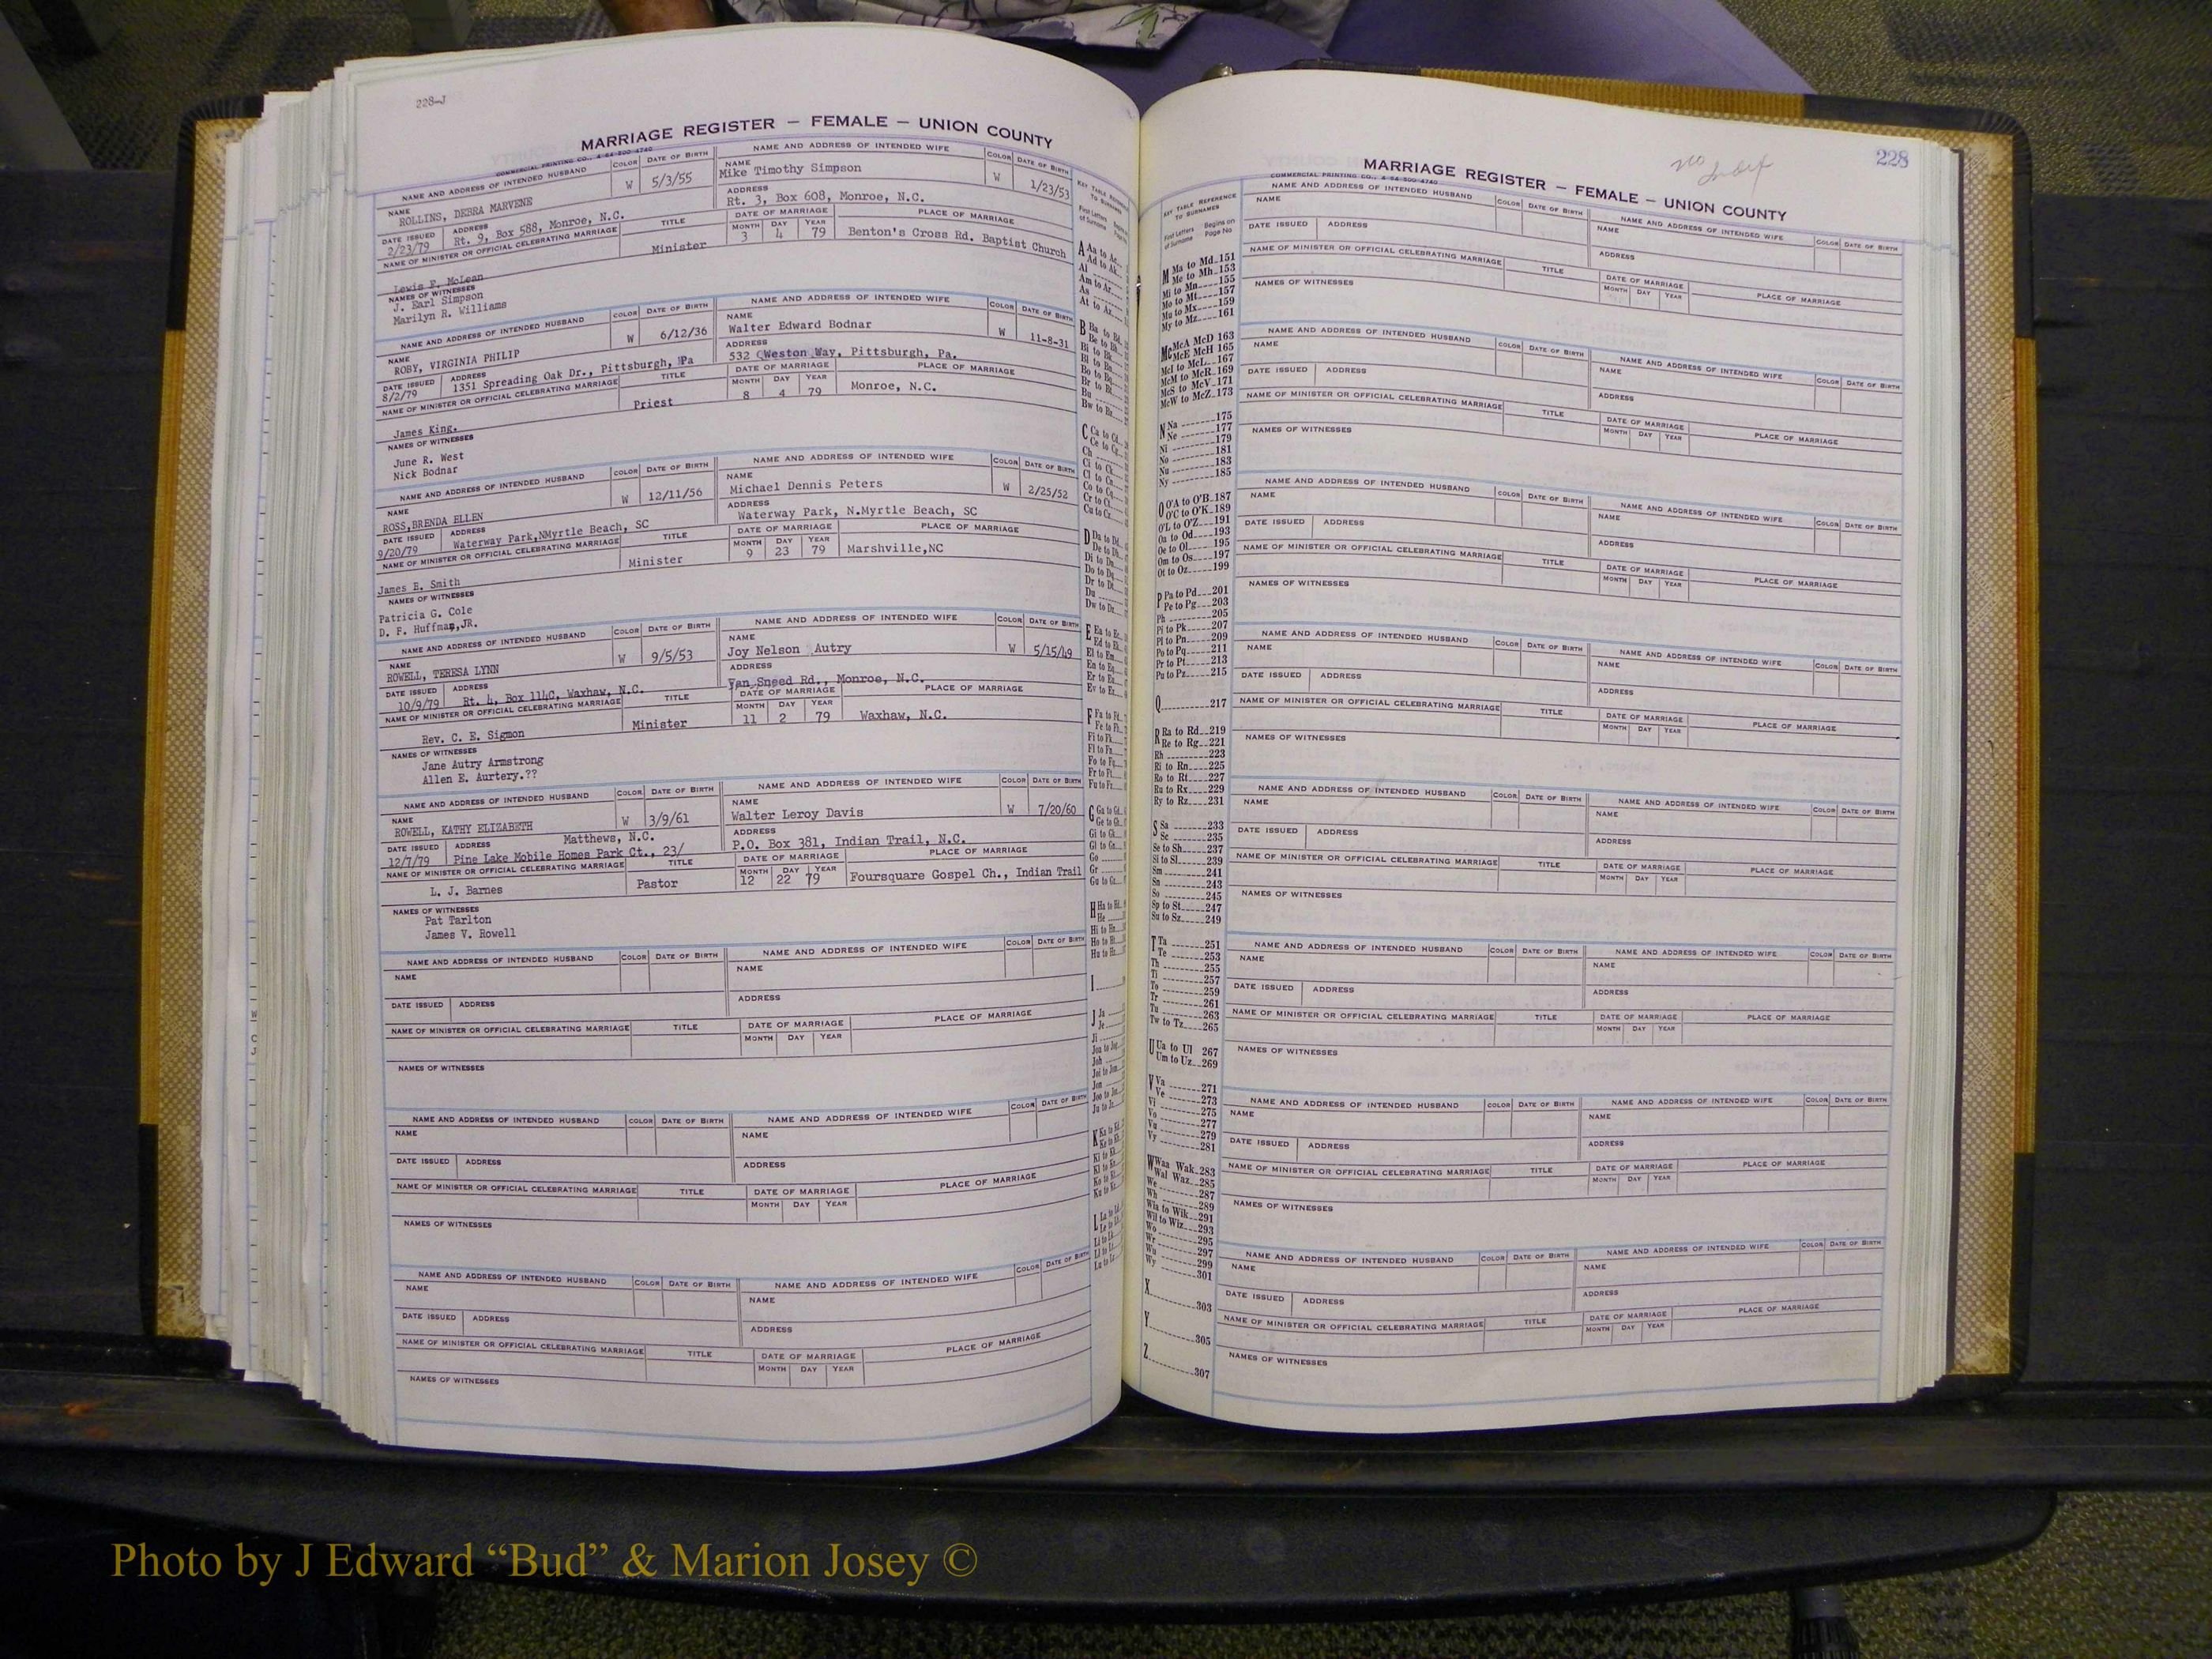 228-J
MARRIAGE REGISTER — FEMALE — UNION COUNTY
COMMERCIAL PRINTING CO.,
NAME AND ADDRESS OF INTENDED HUSBAND COLOR DATE OF BIRTH NAME AND ADDRESS OF INTENDED WIFE COLOR DATE OF BIRTH
NAME ROLLINS, DEBRA MARVENE W 5/3/55 NAME Mike Timothy Simpson W 1/23/53
DATE ISSUED 2/23/79 ADDRESS Rt. 9, Box 588, Monroe, N.C. ADDRESS Rt. 3, Box 608, Monroe, N.C.
NAME OF MINISTER OR OFFICIAL CELEBRATING MARRIAGE TITLE DATE OF MARRIAGE PLACE OF MARRIAGE
MONTH DAY YEAR
Lewis F. McLean Minister 3 4 79 Benton's Cross Rd. Baptist Church
NAMES OF WITNESSES
J. Earl Simpson
Marilyn R. Williams
NAME AND ADDRESS OF INTENDED HUSBAND COLOR DATE OF BIRTH NAME AND ADDRESS OF INTENDED WIFE COLOR DATE OF BIRTH
NAME ROBY, VIRGINIA PHILIP W 6/12/36 NAME Walter Edward Bodnar W 11-8-31
DATE ISSUED 8/2/79 ADDRESS 1351 Spreading Oak Dr., Pittsburgh, Pa ADDRESS 532 Weston Way, Pittsburgh, Pa.
NAME OF MINISTER OR OFFICIAL CELEBRATING MARRIAGE TITLE DATE OF MARRIAGE PLACE OF MARRIAGE
MONTH DAY YEAR
James King. Priest 8 4 79 Monroe, N.C.
NAMES OF WITNESSES
June R. West
Nick Bodnar
NAME AND ADDRESS OF INTENDED HUSBAND COLOR DATE OF BIRTH NAME AND ADDRESS OF INTENDED WIFE COLOR DATE OF BIRTH
NAME ROSS,BRENDA ELLEN W 12/11/56 NAME Michael Dennis Peters W 2/25/52
DATE ISSUED 9/20/79 ADDRESS Waterway Park,NMyrtle Beach, SC ADDRESS Waterway Park, N.Myrtle Beach, SC
NAME OF MINISTER OR OFFICIAL CELEBRATING MARRIAGE TITLE DATE OF MARRIAGE PLACE OF MARRIAGE
MONTH DAY YEAR
James E. Smith Minister 9 23 79 Marshville,NC
NAMES OF WITNESSES
Patricia G. Cole
D. F. Huffman,JR.
NAME AND ADDRESS OF INTENDED HUSBAND COLOR DATE OF BIRTH NAME AND ADDRESS OF INTENDED WIFE COLOR DATE OF BIRTH
NAME ROWELL, TERESA LYNN W 9/5/53 NAME Joy Nelson Autry W 5/15/49
DATE ISSUED 10/9/79 ADDRESS Rt. 4, Box 114C, Waxhaw, N.C. ADDRESS Van Sneed Rd., Monroe, N.C.
NAME OF MINISTER OR OFFICIAL CELEBRATING MARRIAGE TITLE DATE OF MARRIAGE PLACE OF MARRIAGE
MONTH DAY YEAR
Rev. C. E. Sigmon Minister 11 2 79 Waxhaw, N.C.
NAMES OF WITNESSES
Jane Autry Armstrong
Allen E. Aurtery.??
NAME AND ADDRESS OF INTENDED HUSBAND COLOR DATE OF BIRTH NAME AND ADDRESS OF INTENDED WIFE COLOR DATE OF BIRTH
NAME ROWELL, KATHY ELIZABETH W 3/9/61 NAME Walter Leroy Davis W 7/20/60
Matthews, N.C.
DATE ISSUED 12/7/79 ADDRESS Pine Lake Mobile Homes Park Ct., 23/ ADDRESS P.O. Box 381, Indian Trail, N.C.
NAME OF MINISTER OR OFFICIAL CELEBRATING MARRIAGE TITLE DATE OF MARRIAGE PLACE OF MARRIAGE
MONTH DAY YEAR
L. J. Barnes Pastor 12 22 79 Foursquare Gospel Ch., Indian Trail
NAMES OF WITNESSES
Pat Tarlton
James V. Rowell
NAME AND ADDRESS OF INTENDED HUSBAND COLOR DATE OF BIRTH NAME AND ADDRESS OF INTENDED WIFE COLOR DATE OF BIRTH
NAME NAME
DATE ISSUED ADDRESS ADDRESS
NAME OF MINISTER OR OFFICIAL CELEBRATING MARRIAGE TITLE DATE OF MARRIAGE PLACE OF MARRIAGE
MONTH DAY YEAR
NAMES OF WITNESSES
NAME AND ADDRESS OF INTENDED HUSBAND COLOR DATE OF BIRTH NAME AND ADDRESS OF INTENDED WIFE COLOR DATE OF BIRTH
NAME NAME
DATE ISSUED ADDRESS ADDRESS
NAME OF MINISTER OR OFFICIAL CELEBRATING MARRIAGE TITLE DATE OF MARRIAGE PLACE OF MARRIAGE
MONTH DAY YEAR
NAMES OF WITNESSES
NAME AND ADDRESS OF INTENDED HUSBAND COLOR DATE OF BIRTH NAME AND ADDRESS OF INTENDED WIFE COLOR DATE OF BIRTH
NAME NAME
DATE ISSUED ADDRESS ADDRESS
NAME OF MINISTER OR OFFICIAL CELEBRATING MARRIAGE TITLE DATE OF MARRIAGE PLACE OF MARRIAGE
MONTH DAY YEAR
NAMES OF WITNESSES
228
MARRIAGE REGISTER — FEMALE — UNION COUNTY
COMMERCIAL PRINTING CO.,
KEY TABLE REFERENCE
TO SURNAMES
First Letters of Surname Begins on Page No
M Ma to Md 151
Me to Mh 153
Mi to Mn 155
Mo to Mt 157
Mu to Mx 159
My to Mz 161
Mc McA McD 163
McE McH 165
McI to McL 167
McM to McR 169
McS to McV 171
McW to McZ 173
N Na 175
Ne 177
Ni 179
No 181
Nu 183
Ny 185
O O'A to O'B 187
O'C to O'K 189
O'L to O'Z 191
Oa to Od 193
Oe to Ol 195
Om to Os 197
Ot to Oz 199
P Pa to Pd 201
Pe to Pg 203
Ph 205
Pi to Pk 207
Pl to Pn 209
Po to Pq 211
Pr to Pt 213
Pu to Pz 215
Q 217
R Ra to Rd 219
Re to Rg 221
Rh 223
Ri to Rn 225
Ro to Rt 227
Ru to Rx 229
Ry to Rz 231
S Sa 233
Sc 235
Se to Sh 237
Si to Sl 239
Sm 241
Sn 243
So 245
Sp to St 247
Su to Sz 249
T Ta 251
Te 253
Th 255
Ti 257
To 259
Tr 261
Tu 263
Tw to Tz 265
U Ua to Ul 267
Um to Uz 269
V Va 271
Ve 273
Vi 275
Vo 277
Vu 279
Vy 281
W Waa Wak 283
Wal Waz 285
We 287
Wh 289
Wia to Wik 291
Wil to Wiz 293
Wo 295
Wr 297
Wu 299
Wy 301
X 303
Y 305
Z 307
NAME AND ADDRESS OF INTENDED HUSBAND COLOR DATE OF BIRTH NAME AND ADDRESS OF INTENDED WIFE COLOR DATE OF BIRTH
NAME NAME
DATE ISSUED ADDRESS ADDRESS
NAME OF MINISTER OR OFFICIAL CELEBRATING MARRIAGE TITLE DATE OF MARRIAGE PLACE OF MARRIAGE
MONTH DAY YEAR
NAMES OF WITNESSES
NAME AND ADDRESS OF INTENDED HUSBAND COLOR DATE OF BIRTH NAME AND ADDRESS OF INTENDED WIFE COLOR DATE OF BIRTH
NAME NAME
DATE ISSUED ADDRESS ADDRESS
NAME OF MINISTER OR OFFICIAL CELEBRATING MARRIAGE TITLE DATE OF MARRIAGE PLACE OF MARRIAGE
MONTH DAY YEAR
NAMES OF WITNESSES
NAME AND ADDRESS OF INTENDED HUSBAND COLOR DATE OF BIRTH NAME AND ADDRESS OF INTENDED WIFE COLOR DATE OF BIRTH
NAME NAME
DATE ISSUED ADDRESS ADDRESS
NAME OF MINISTER OR OFFICIAL CELEBRATING MARRIAGE TITLE DATE OF MARRIAGE PLACE OF MARRIAGE
MONTH DAY YEAR
NAMES OF WITNESSES
NAME AND ADDRESS OF INTENDED HUSBAND COLOR DATE OF BIRTH NAME AND ADDRESS OF INTENDED WIFE COLOR DATE OF BIRTH
NAME NAME
DATE ISSUED ADDRESS ADDRESS
NAME OF MINISTER OR OFFICIAL CELEBRATING MARRIAGE TITLE DATE OF MARRIAGE PLACE OF MARRIAGE
MONTH DAY YEAR
NAMES OF WITNESSES
NAME AND ADDRESS OF INTENDED HUSBAND COLOR DATE OF BIRTH NAME AND ADDRESS OF INTENDED WIFE COLOR DATE OF BIRTH
NAME NAME
DATE ISSUED ADDRESS ADDRESS
NAME OF MINISTER OR OFFICIAL CELEBRATING MARRIAGE TITLE DATE OF MARRIAGE PLACE OF MARRIAGE
MONTH DAY YEAR
NAMES OF WITNESSES
NAME AND ADDRESS OF INTENDED HUSBAND COLOR DATE OF BIRTH NAME AND ADDRESS OF INTENDED WIFE COLOR DATE OF BIRTH
NAME NAME
DATE ISSUED ADDRESS ADDRESS
NAME OF MINISTER OR OFFICIAL CELEBRATING MARRIAGE TITLE DATE OF MARRIAGE PLACE OF MARRIAGE
MONTH DAY YEAR
NAMES OF WITNESSES
NAME AND ADDRESS OF INTENDED HUSBAND COLOR DATE OF BIRTH NAME AND ADDRESS OF INTENDED WIFE COLOR DATE OF BIRTH
NAME NAME
DATE ISSUED ADDRESS ADDRESS
NAME OF MINISTER OR OFFICIAL CELEBRATING MARRIAGE TITLE DATE OF MARRIAGE PLACE OF MARRIAGE
MONTH DAY YEAR
NAMES OF WITNESSES
NAME AND ADDRESS OF INTENDED HUSBAND COLOR DATE OF BIRTH NAME AND ADDRESS OF INTENDED WIFE COLOR DATE OF BIRTH
NAME NAME
DATE ISSUED ADDRESS ADDRESS
NAME OF MINISTER OR OFFICIAL CELEBRATING MARRIAGE TITLE DATE OF MARRIAGE PLACE OF MARRIAGE
MONTH DAY YEAR
NAMES OF WITNESSES
Photo by J Edward “Bud” & Marion Josey ©